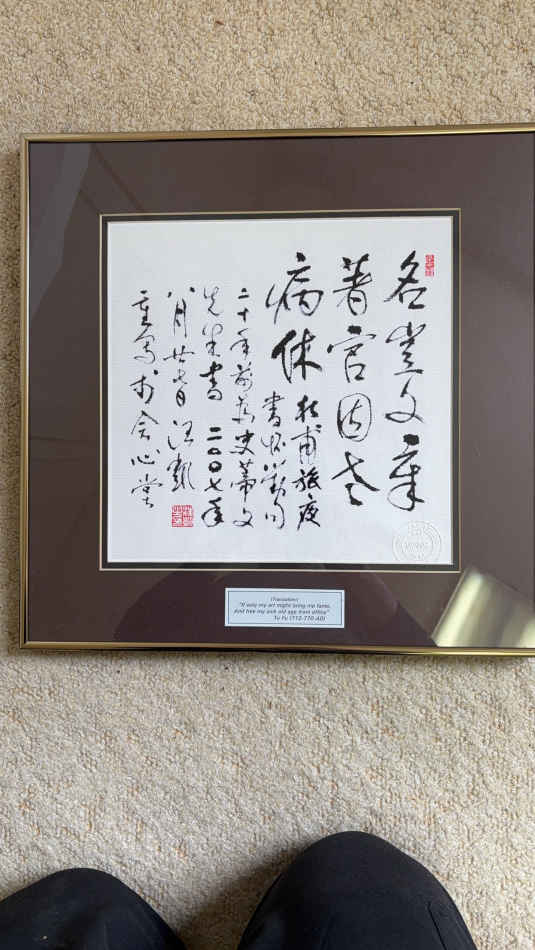 名豈文章
著官因老
病休 杜甫旅夜
書怀句
二十年前为史蒂文
先生書 二〇〇七年
八月廿日 汪凱
重写於会心堂
(Translation)
"If only my art might bring me fame,
And free my sick old age from office"
Tu Fu (712-770 AD)